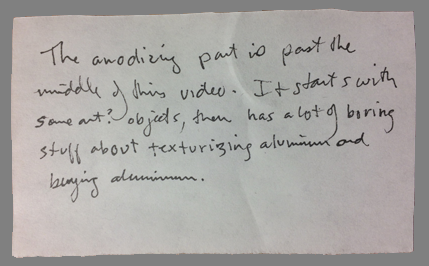 The anodizing part is past the
middle of this video. It starts with
some art? objects, then has a lot of boring
stuff about texturizing aluminum and
buying aluminum.